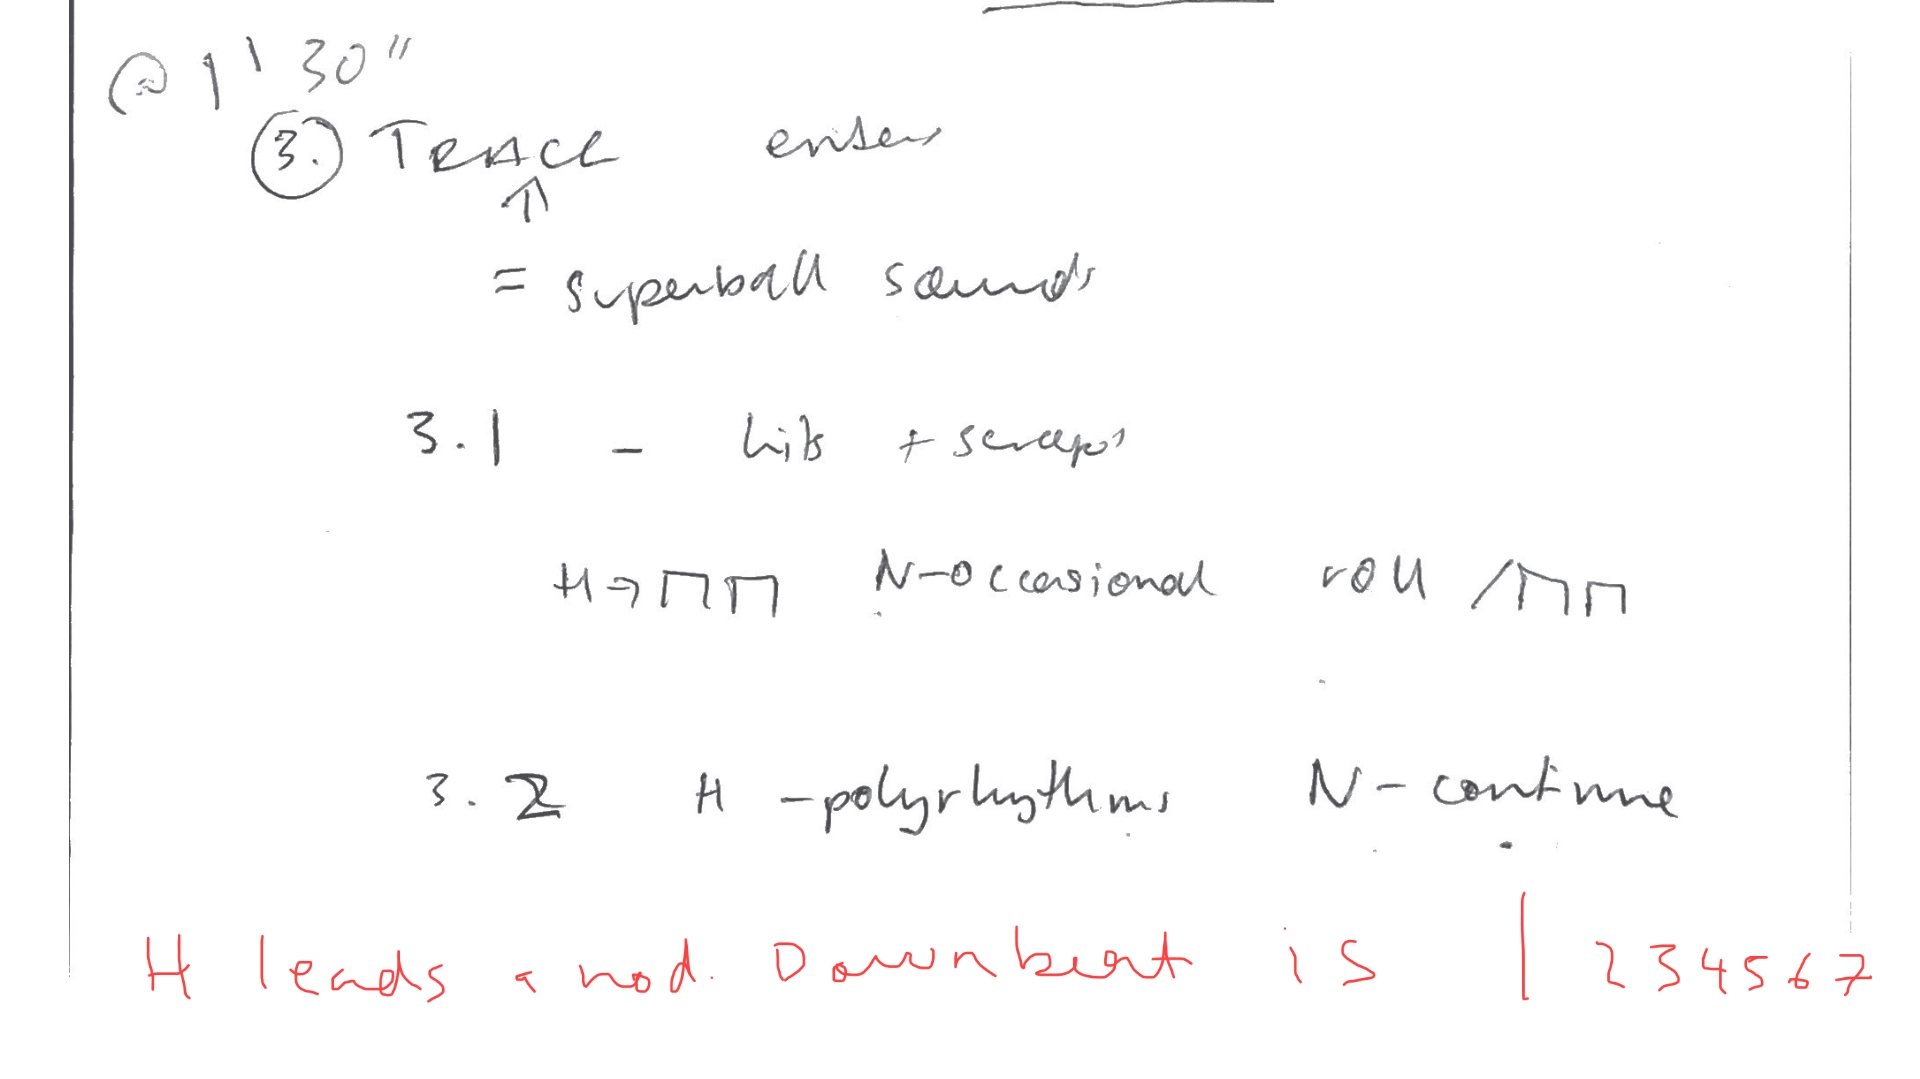 @ 1' 30"
3. TRACE enters
↑
= superball sounds
3.1 - hits + scrapes
H → ⊓ ⊓ N-occasional roll /⊓ ⊓
3.2 H - polyrhythms N - continue
H leads a nod. Downbeat is | 234567